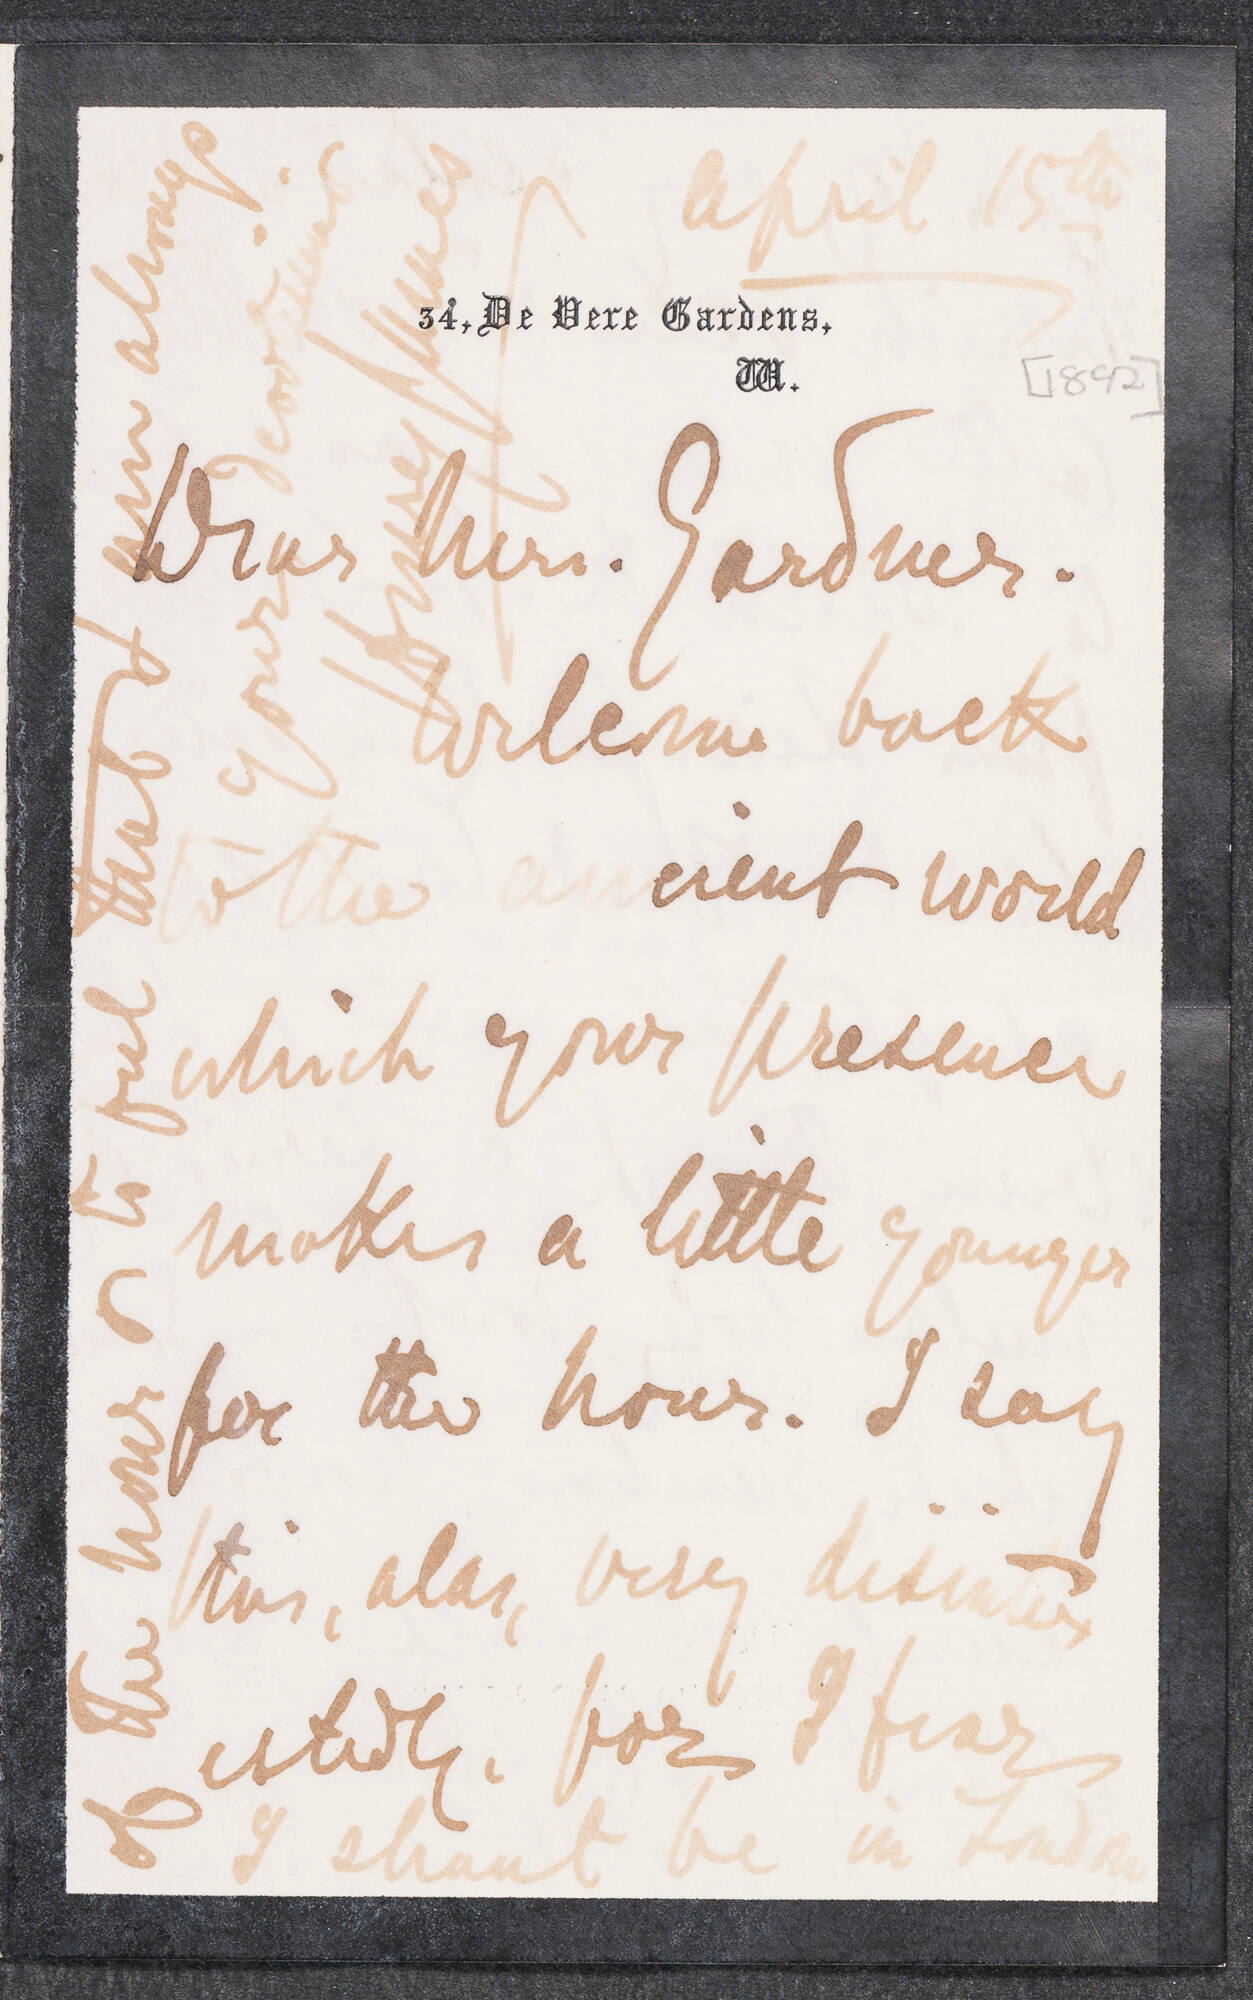 April 15th
34, De Vere Gardens,
W.
[1892]
Dear Mrs. Gardner.
Welcome back
to the ancient world
which your presence
makes a little younger
for the hour. I say
this, alas, very disinter
estedly, for I fear
I shan't be in London
of the hour & to feel that I am always
your devotedest
Henry James